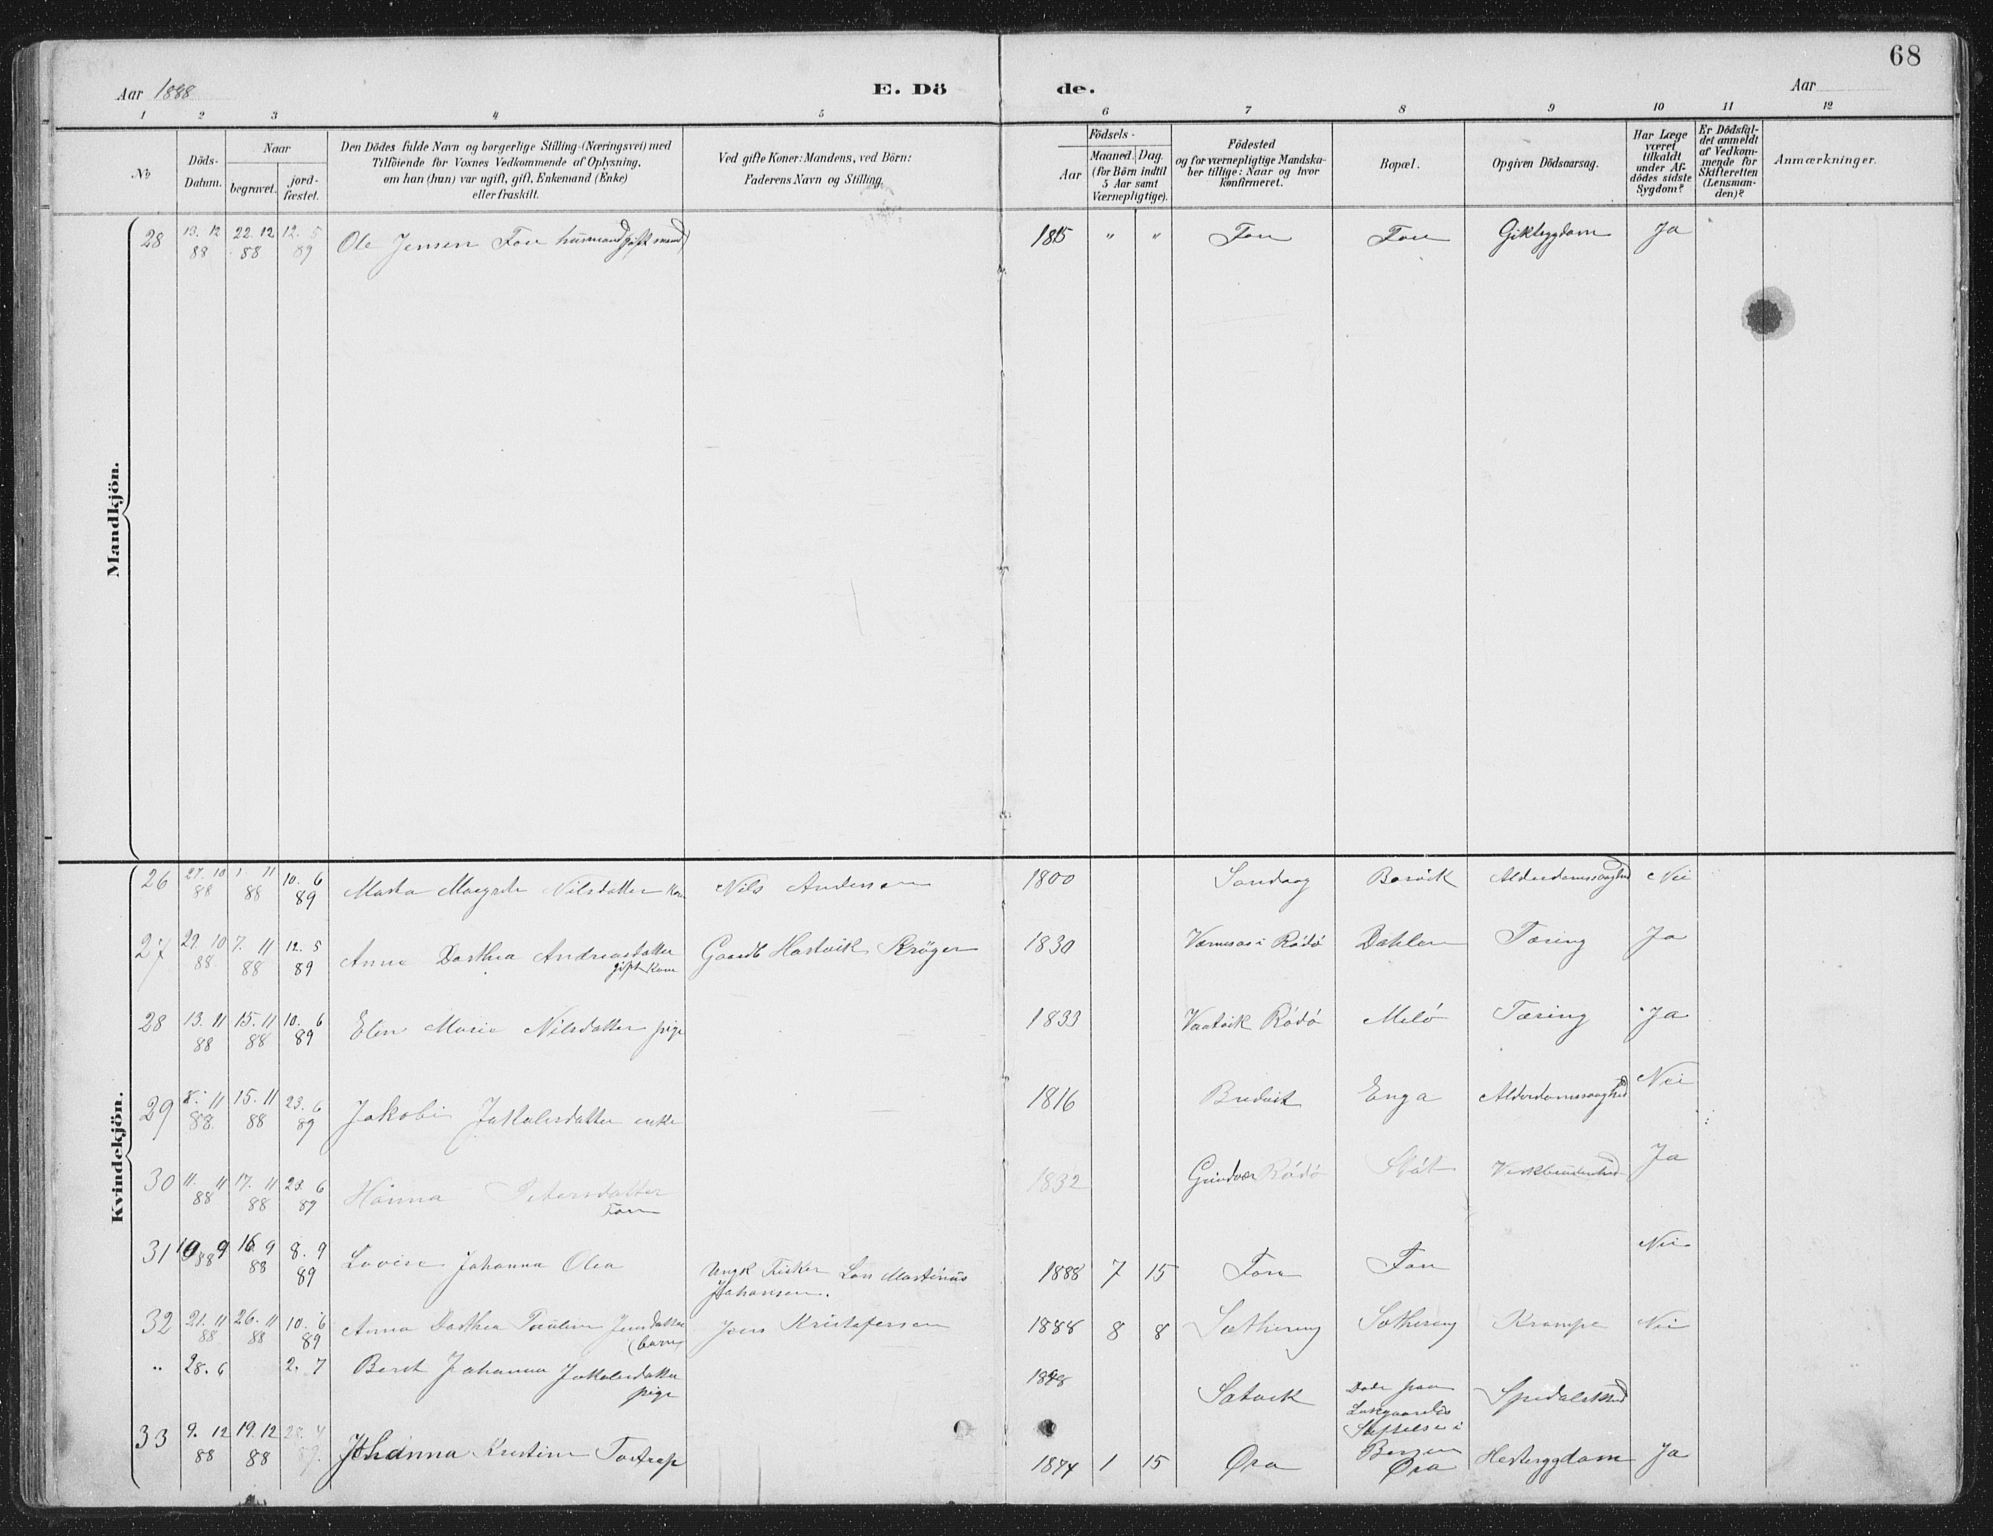 68
Aar 1888
E. Dö
de.
Aar
1 2 3 4 5 6 7 8 9 10 11 12
No
Döds-Datum.
Naar
begravet.
jordfæstet.
Den Dödes fulde Navn og borgerlige Stilling (Næringsvei) med
Tilföiende for Voxnes Vedkommende af Oplysning,
om han (hun) var ugift, gift, Enkemand (Enke)
eller fraskilt.
Ved gifte Koner: Mandens, ved Börn:
Faderens Navn og Stilling.
Födsels-
Aar
Maaned. Dag.
(for Börn indtil
5 Aar samt
Værnepligtige).
Födested
og for værnepligtige Mandska-
ber tillige: Naar og hvor
konfirmeret.
Bopæl.
Opgiven Dödsaarsag.
Har Læge
været
tilkaldt
under Af-
dödes sidste
Sygdom?
Er Dödsfal-
det anmeldt
af Vedkom-
mende for
Skifteretten
(Lensman-
den)?
Anmærkninger.
Mandkjön.
28 13. 12 88 22. 12 88 12. 5 89 Ole Jensen Forr husmand gift mand 1815 " " Forr Forr Gikt Ja
Kvindekjön.
26 27. 10 88 1. 11 88 10. 6 89 Nilsdatter Nils Andersen 1800 Alderdomssvaghed Nei
27 29. 10 88 7. 11 88 12. 5 89 Anne Dorthea Andreasdatter Hartvik Krøger 1830 i Rødø Dahlen Tæring Ja
gift Kone
28 13. 11 88 15. 11 88 10. 6 89 Elen Marie Nilsdatter pige 1833 Rødø Melø Tæring Ja
29 8. 11 88. 15. 11 88 23. 6 89 Jakobi Jakobsdatter enke 1816 Bredvik Enga Alderdomssvaghed Nei
30 11. 11 88 17. 11 88 23. 6 89 Hanna Petersdatter 1832 Rødø Støt Ja
Forr
31 10 9 88 16. 9 88 8. 9 89 Lovise Johanna Olea Ungk Fisker Martinus 1888 7 15 Forr Forr Nei
Johansen.
32 21. 11 88 26. 11 88 10. 6 89 Anna Dorthea Jensdatter Jens Kristofersen 1888 8 8 Krampe Nei
(barn)
" 28. 6 2. 7 Beret Johanna Jakobsdatter 1848 Spedalskhed
pige
Døde paa
Lungaardens
Stiftelse i
Bergen
33 9. 12 88 19. 12 88 Johanna Kristine 1874 1 15 Øra Øra Ja